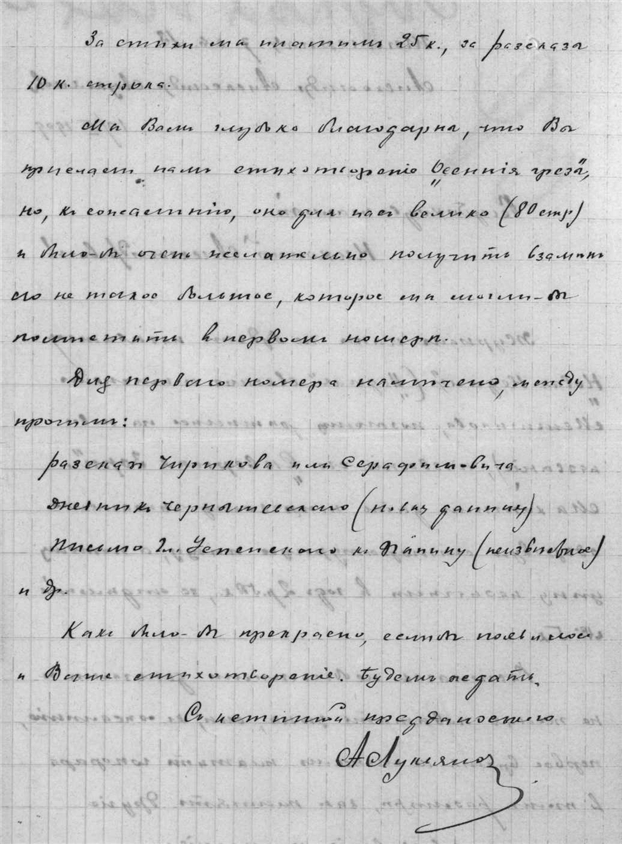 За стихи мы платимъ 25 к., за разсказы
10 к. строка.
Мы Вамъ глубоко благодарны, что Вы
присылаете намъ стихотвореніе „Осеннія грезы",
но, къ сожалѣнію, оно для насъ велико (80 стр)
и было-бъ очень желательно получить взамѣнъ
его не такое большое, которое мы могли-бъ
помѣстить въ первомъ номерѣ.
Для перваго номера намѣчено, между
прочимъ:
разсказъ Чирикова или Серафимовича
дневникъ Чернышевскаго (новыя данныя)
письмо Гл. Успенскаго къ Пыпину (неизвѣстное)
и др.
Какъ было-бъ прекрасно, если-бъ появилось
и Ваше стихотвореніе. Будемъ ждать.
Съ истинной преданностью
А Лукьянов